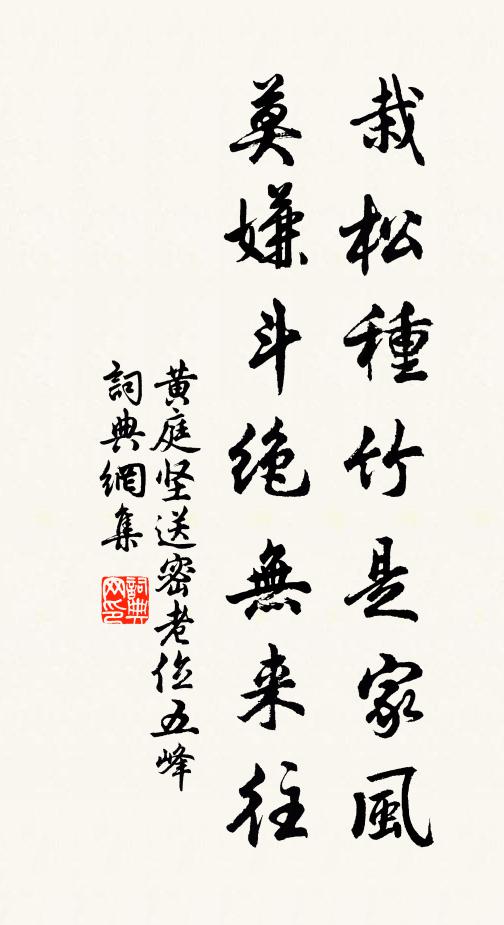 栽松種竹是家風
莫嫌斗绝無来往
黄庭坚送密老住五峰
詞典網集
詞典
网印